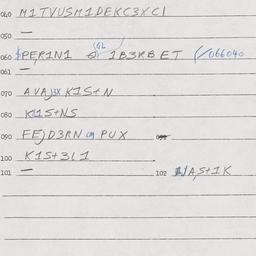 040 M1TVUSM1DEKC3XC1
050 —
060 PER1N1 1B3RBET (/066040
061 —
070 AVAJ3X K1S+N
080 K1S+NS
090 FEJD3RN PUX
100 K1S+3L1
101 — 102 JAS+1K